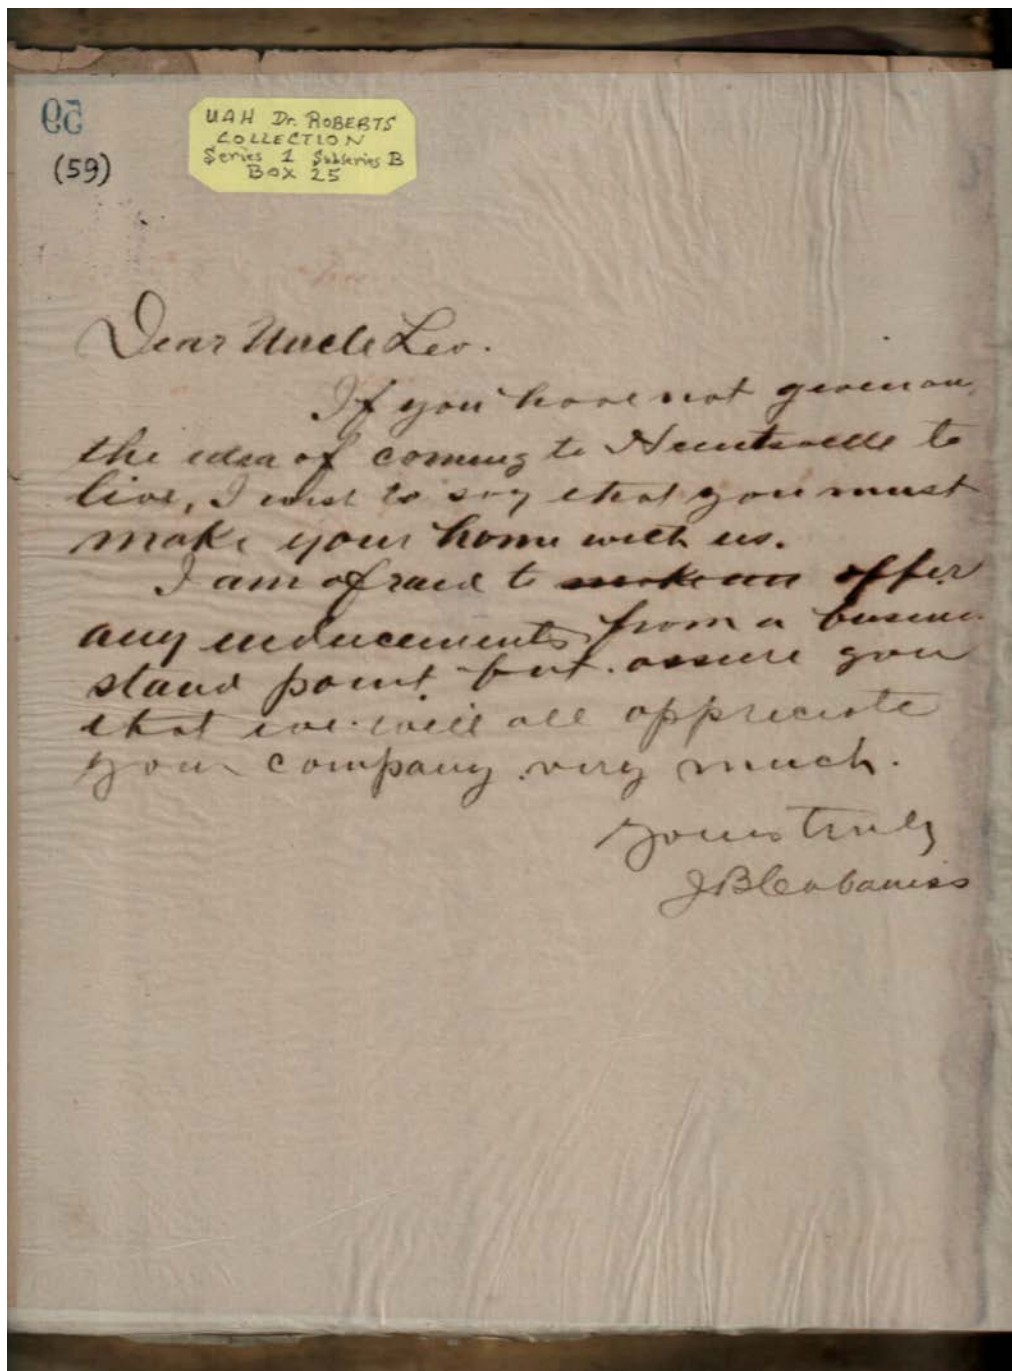 59
(59)
UAH Dr. ROBERTS
COLLECTION
Series 1 Subseries B
BOX 25
Dear Uncle Leo.
If you have not given
the idea of coming to Huntsville to
live, I wish to say that you must
make your home with us.
I am afraid to make an offer
any inducements from a
stand point but assure you
that we will all appreciate
your company very much.
Yours truly
J B Cabaniss